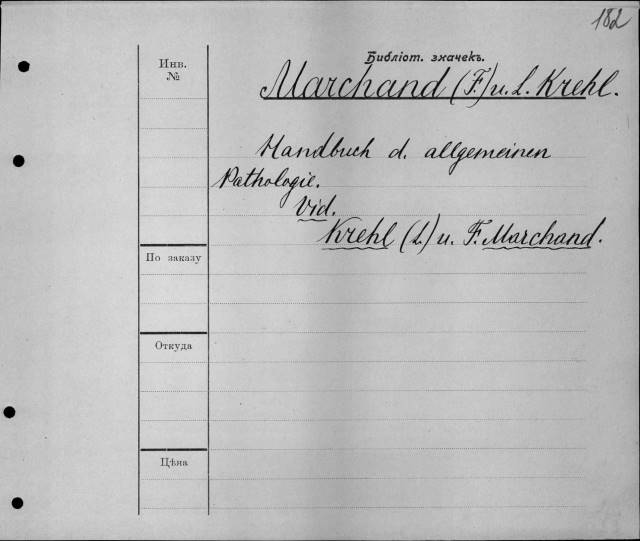 182
Библіот. значекъ.
Инв.
№
Marchand (F.) u. L. Krehl.
Handbuch d. allgemeinen
Pathologie.
Vid.
Krehl (L.) u. F. Marchand.
По заказу
Откуда
Цѣна